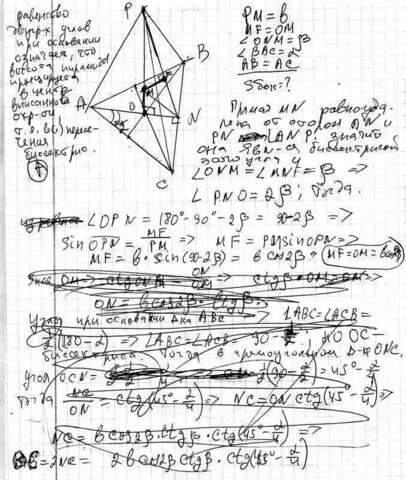 равенство
двугр-х углов
при основании
означает, что
высота пирамиды
проецируется
в центр
вписанной
окр-ти
т.е. в(.) пересе-
чения
биссектрис.
P
B
A
O
N
C
PM = b
MF = OM
∠ONM = β
∠BAC = α
AB = AC
Sбок = ?
Прямая MN равноуда-
лена от сторон AN и
PN ∠ANP, значит
она явл-ся биссектрисой
этого угла
∠ONM = ∠MNF = β =>
∠PNO = 2β; тогда
∠OPN = 180° - 90° - 2β = 90 - 2β =>
sin OPN = MF/PM => MF = PM sin OPN =>
MF = b · sin(90 - 2β) = b cos 2β => MF = OM = b cos 2β
ON = b cos 2β · ctg β.
Угол при основании Δка ABC => ∠ABC = ∠ACB =
1/2 (180 - α) => ∠ABC = ∠ACB = 90 - α/2, но OC -
биссектриса. Тогда в прямоугольном Δ-ке ONC,
угол OCN = 1/2 (90 - α/2) = 45° - α/4
Тогда NC/ON = ctg(45° - α/4) => NC = ON ctg(45° - α/4) =>
NC = b cos 2β · ctg β · ctg(45° - α/4) =>
BC = 2NC = 2b cos 2β ctg β · ctg(45° - α/4)